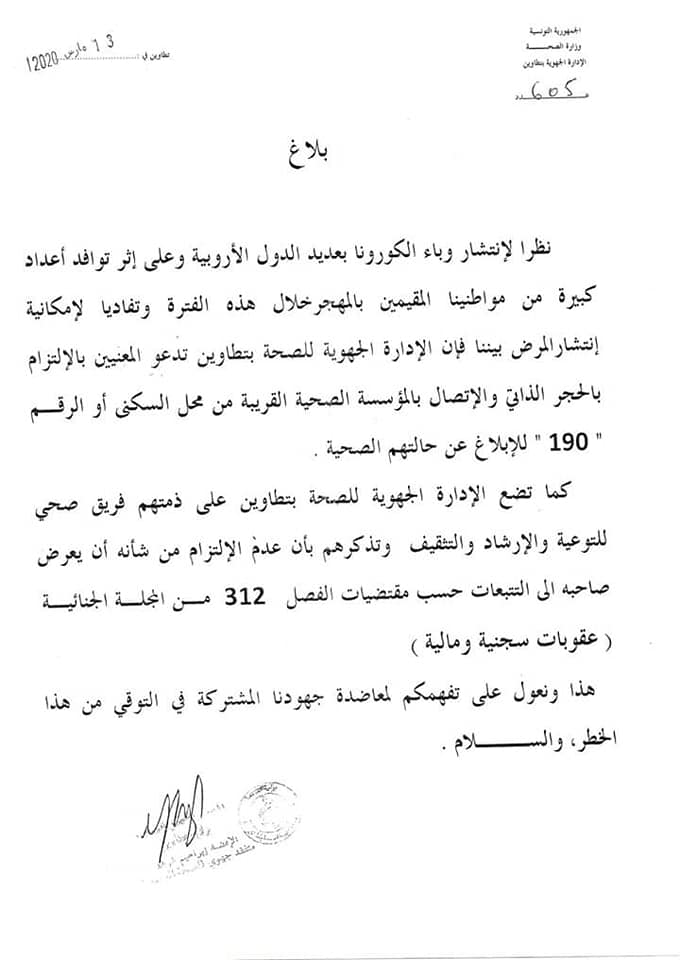 الجمهورية التونسية
وزارة الصحـــة
الإدارة الجهوية بتطاوين
605
تطاوين في : 13 مارس 2020
بلاغ
نظرا لإنتشار وباء الكورونا بعديد الدول الأروبية وعلى إثر توافد أعداد
كبيرة من مواطنينا المقيمين بالمهجرخلال هذه الفترة وتفاديا لإمكانية
إنتشارالمرض بيننا فإن الإدارة الجهوية للصحة بتطاوين تدعو المعنيين بالإلتزام
بالحجر الذاتي والإتصال بالمؤسسة الصحية القريبة من محل السكنى أو الرقــم
" 190 " للإبلاغ عن حالتهم الصحية .
كما تضع الإدارة الجهوية للصحة بتطاوين على ذمتهم فريق صحي
للتوعية والإرشاد والتثقيف وتذكرهم بأن عدم الإلتزام من شأنه أن يعرض
صاحبه الى التتبعات حسب مقتضيات الفصل 312 مــن المجلة الجنائيــة
( عقوبات سجنية ومالية )
هذا ونعول على تفهمكم لمعاضدة جهودنا المشتركة في التوقي من هذا
الخطر، والســــــــلام .